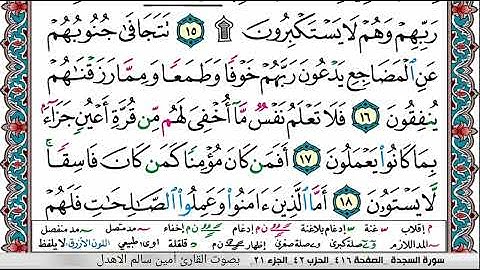 رَبِّهِمْ وَهُمْ لَا يَسْتَكْبِرُونَ ۩ ١٥ تَتَجَافَىٰ جُنُوبُهُمْ
عَنِ الْمَضَاجِعِ يَدْعُونَ رَبَّهُمْ خَوْفًا وَطَمَعًا وَمِمَّا رَزَقْنَاهُمْ
يُنفِقُونَ ١٦ فَلَا تَعْلَمُ نَفْسٌ مَّا أُخْفِيَ لَهُم مِّن قُرَّةِ أَعْيُنٍ جَزَاءً
بِمَا كَانُوا يَعْمَلُونَ ١٧ أَفَمَن كَانَ مُؤْمِنًا كَمَن كَانَ فَاسِقًا ۚ
لَّا يَسْتَوُونَ ١٨ أَمَّا الَّذِينَ ءَامَنُوا وَعَمِلُوا الصَّالِحَاتِ فَلَهُمْ
م إقلاب غنة إدغام بلاغنة إدغام إخفاء مد متصل مد منفصل
المد اللازم صلة كبرى صلة صغرى إظهار قلقلة مد عوض أو طبيعي اللون الأزرق لا يلفظ
سورة السجدة - الصفحة ٤١٦ الحزب ٤٢ الجزء ٢١ بصوت القارئ أمين سالم الاهدل